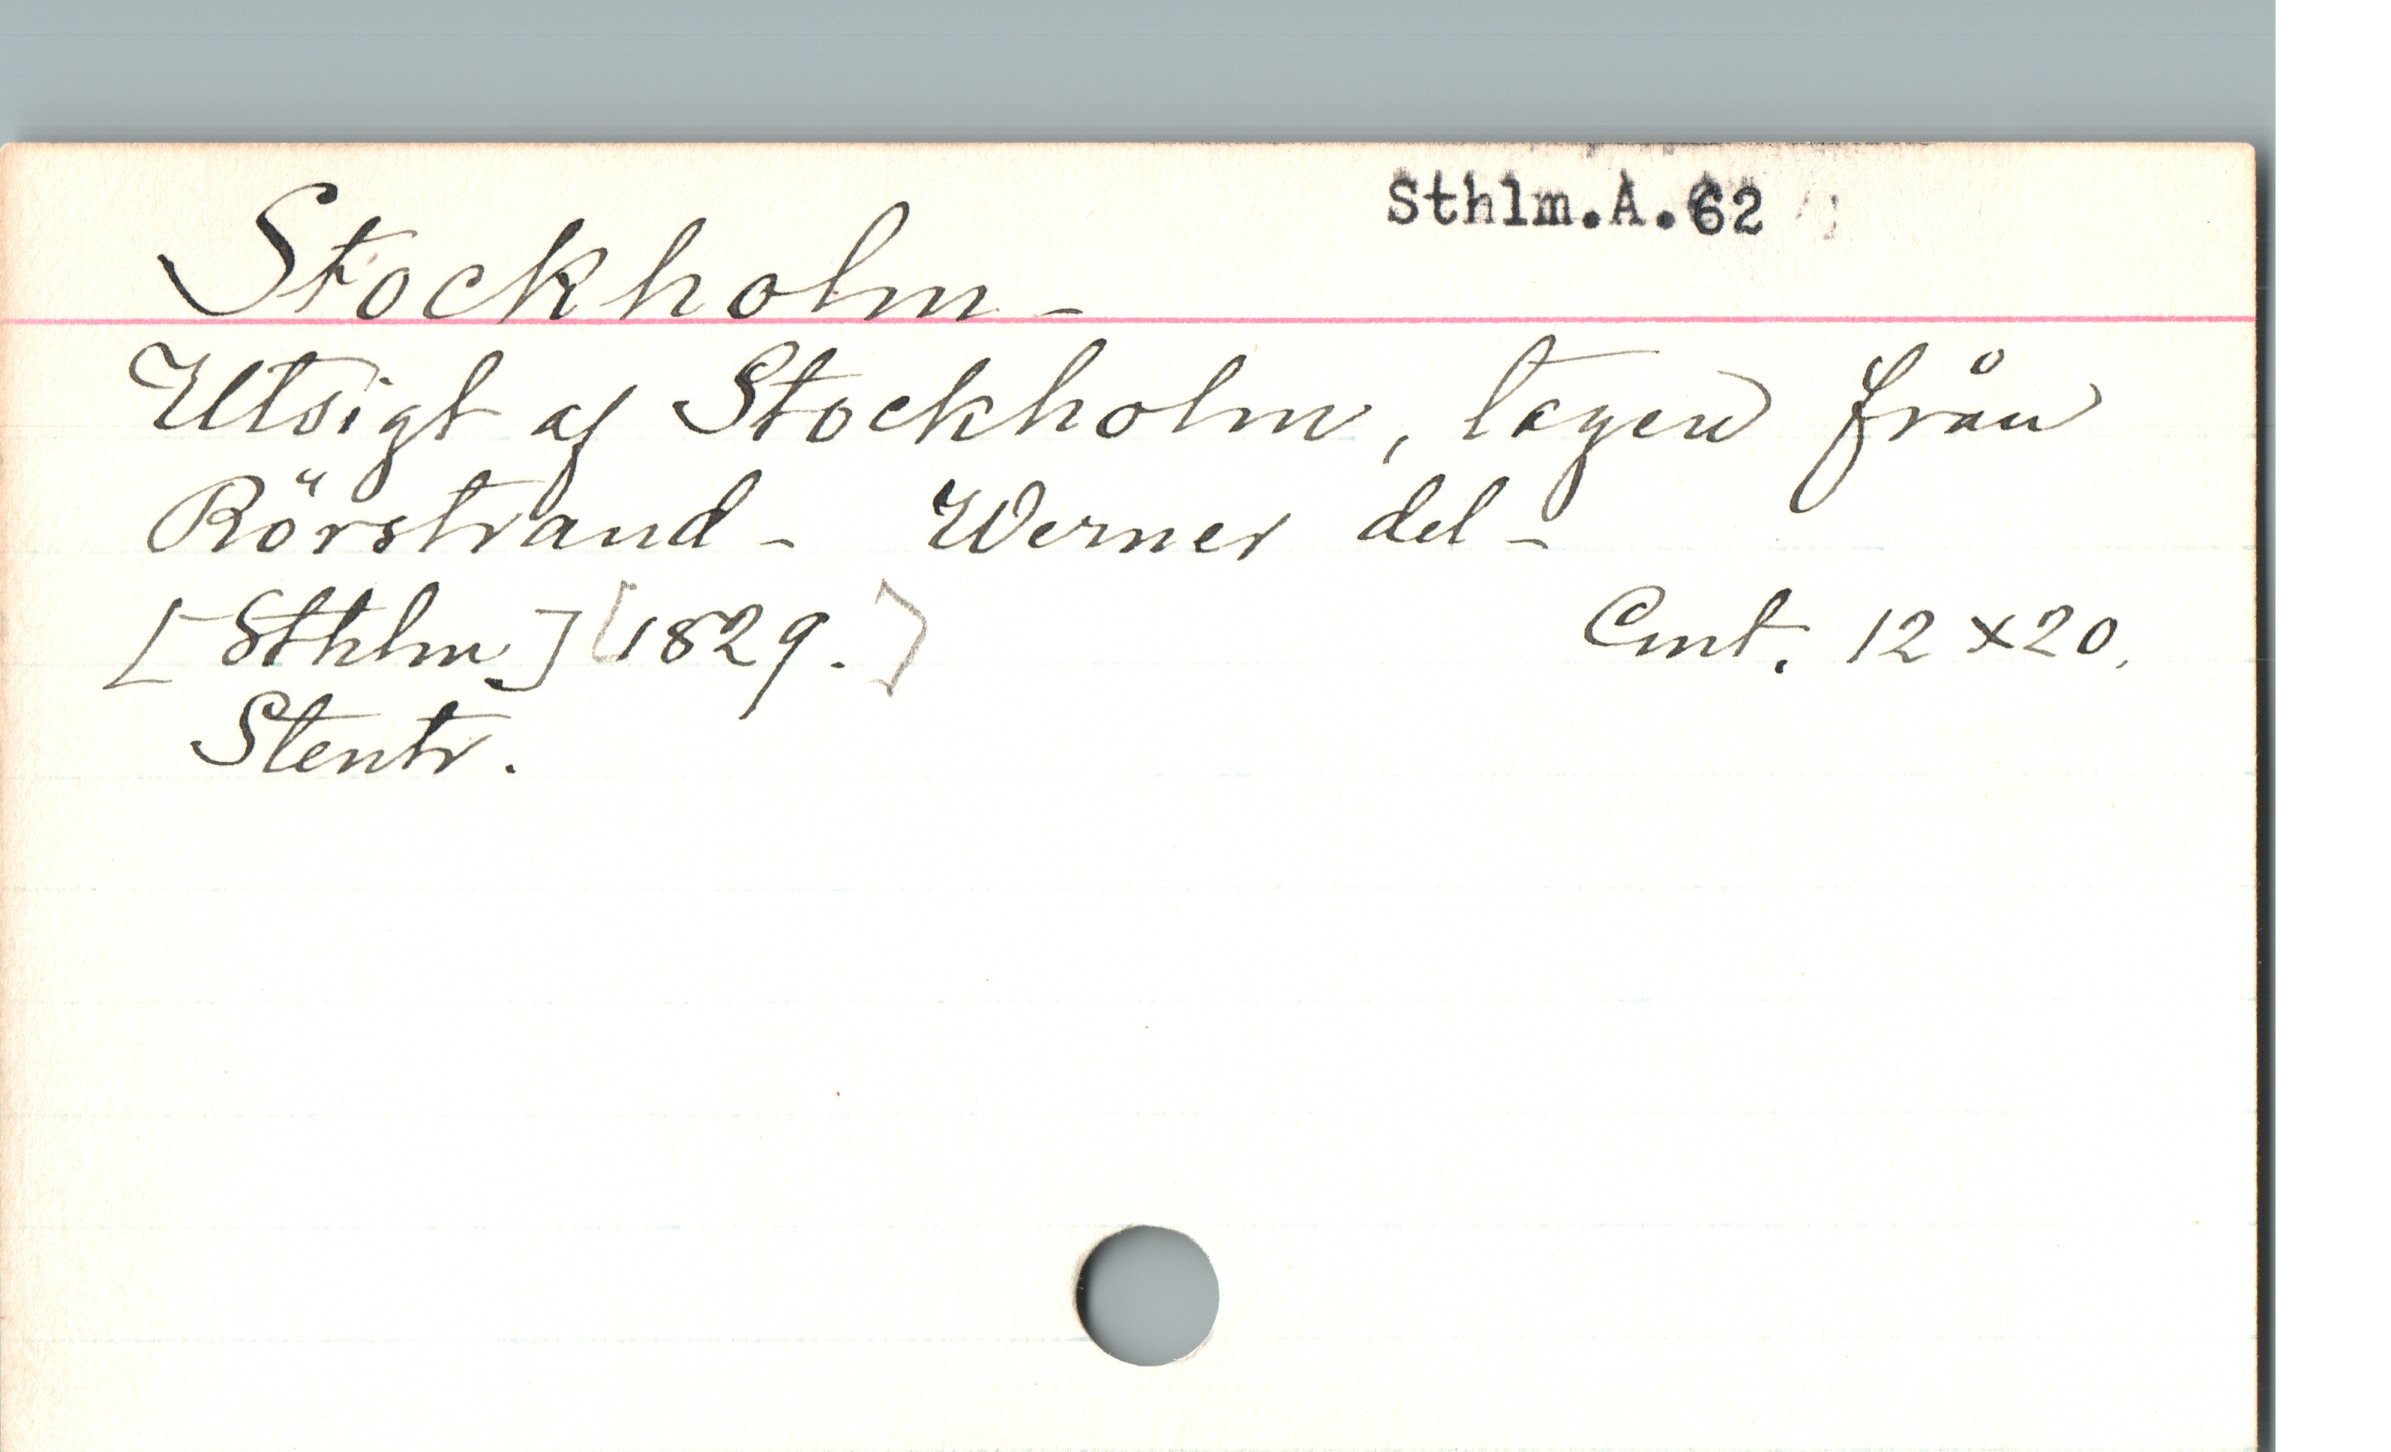 Sthlm.A.62
Stockholm -
Utsigt af Stockholm, tagen från
Rörstrand - Werner del -
[Sthlm] [1829.] Cmt. 12 x 20.
Stentr.